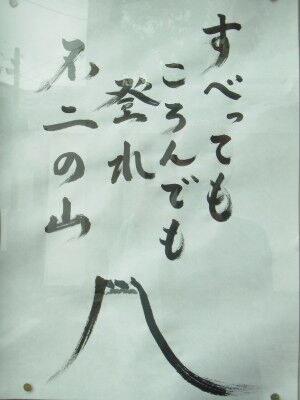 すべっても
ころんでも
登れ
不二の山